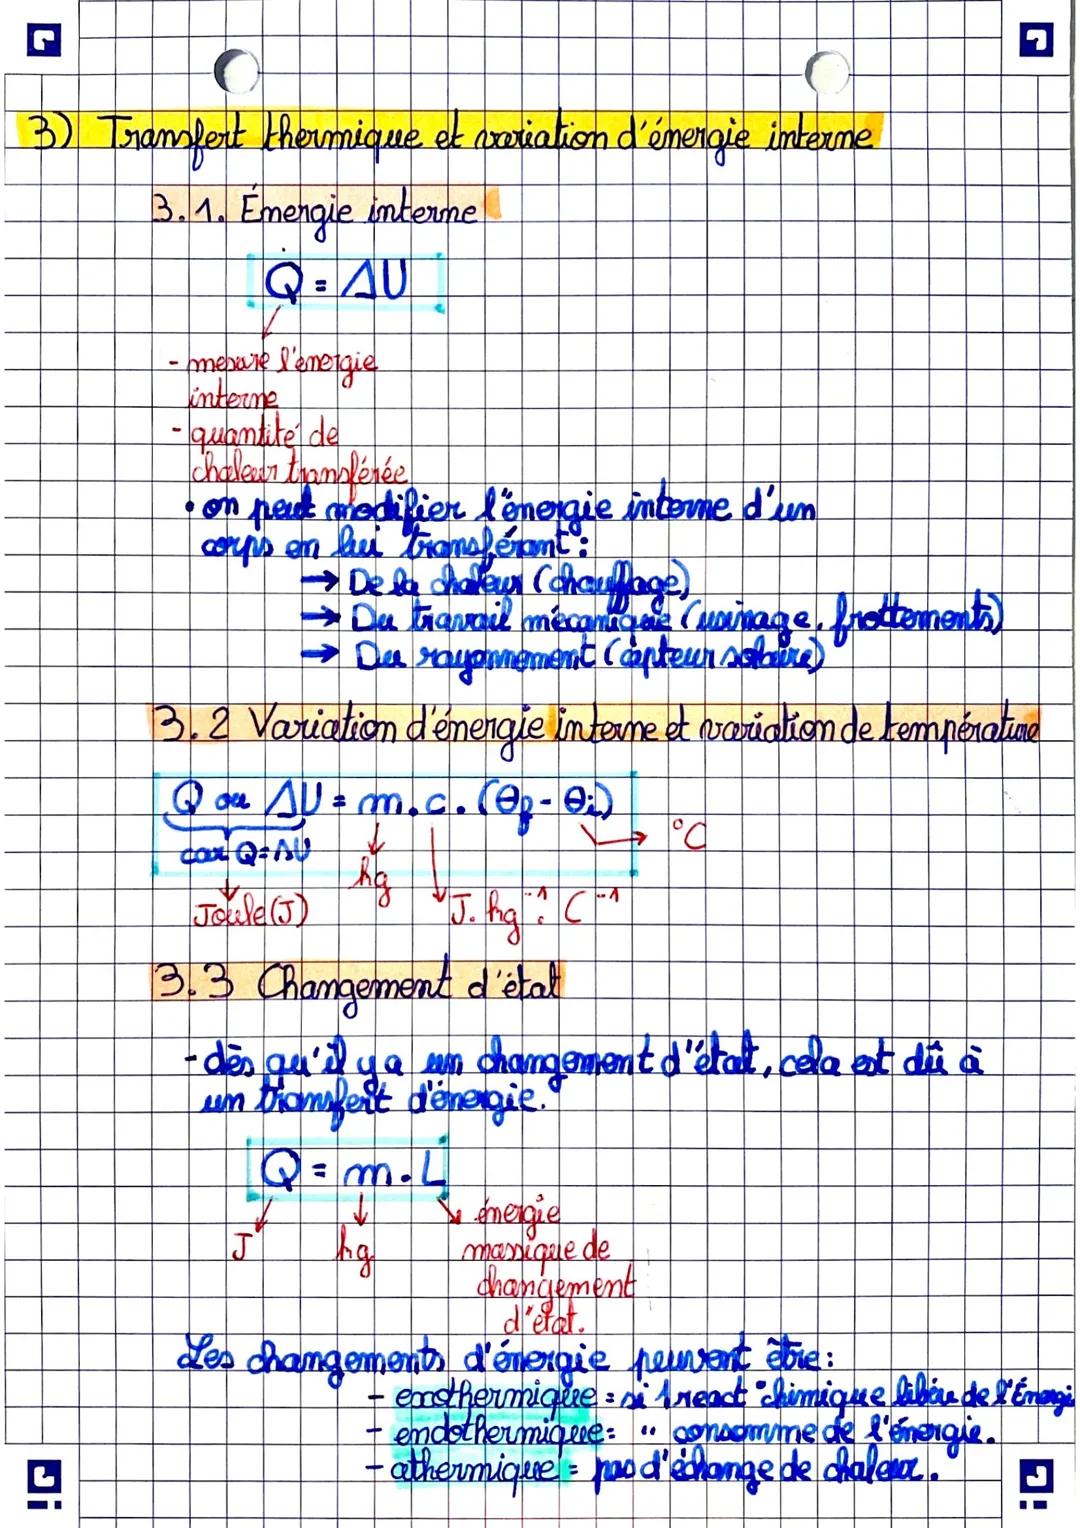 3) Transfert thermique et variation d'énergie interne
3.1. Énergie interne
Q = ΔU
- mesure l'énergie
interne
- quantité de
chaleur transférée
• on peut modifier l'énergie interne d'un
corps en lui transférant :
→ De la chaleur (chauffage)
→ Du travail mécanique (usinage, frottements)
→ Du rayonnement (capteur solaire)
3.2 Variation d'énergie interne et variation de température
Q ou ΔU = m.c.(θf - θi)
→ °C
car Q=ΔU
kg
Joule (J)
J.kg⁻¹.C⁻¹
3.3 Changement d'état
- dès qu'il y a un changement d'état, cela est dû à
un transfert d'énergie.
Q = m.L
J
kg
énergie
massique de
changement
d'état.
Les changements d'énergie peuvent être :
- exothermique = si 1 react° chimique libère de l'énergi
- endothermique = " consomme de l'énergie.
- athermique = pas d'échange de chaleur.